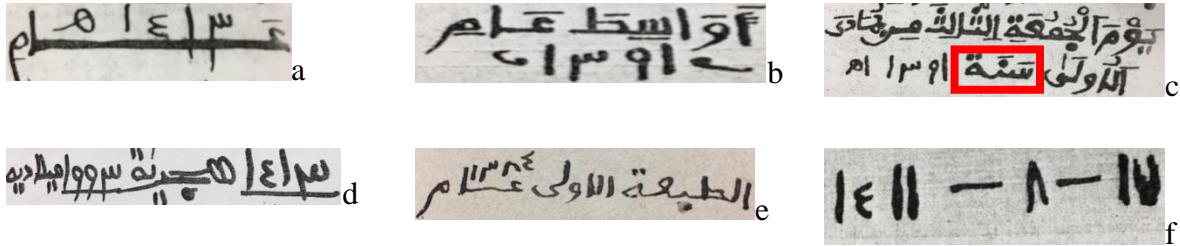 عَام ١٤١٣ هـ
a
أَوَاسِطَ عَـام
١٣٩١
b
يَوْمَ الْجُمُعَةِ الثَّالِثَ مِن جُمَادَى
الأُولَى سَنَة ١٣٩١
c
١٤١٣ هجرية ١٩٩٣ ميلاديه
d
الطبعة الاولى عام ١٣٨٤
e
١٧ — ٨ — ١٤١١
f